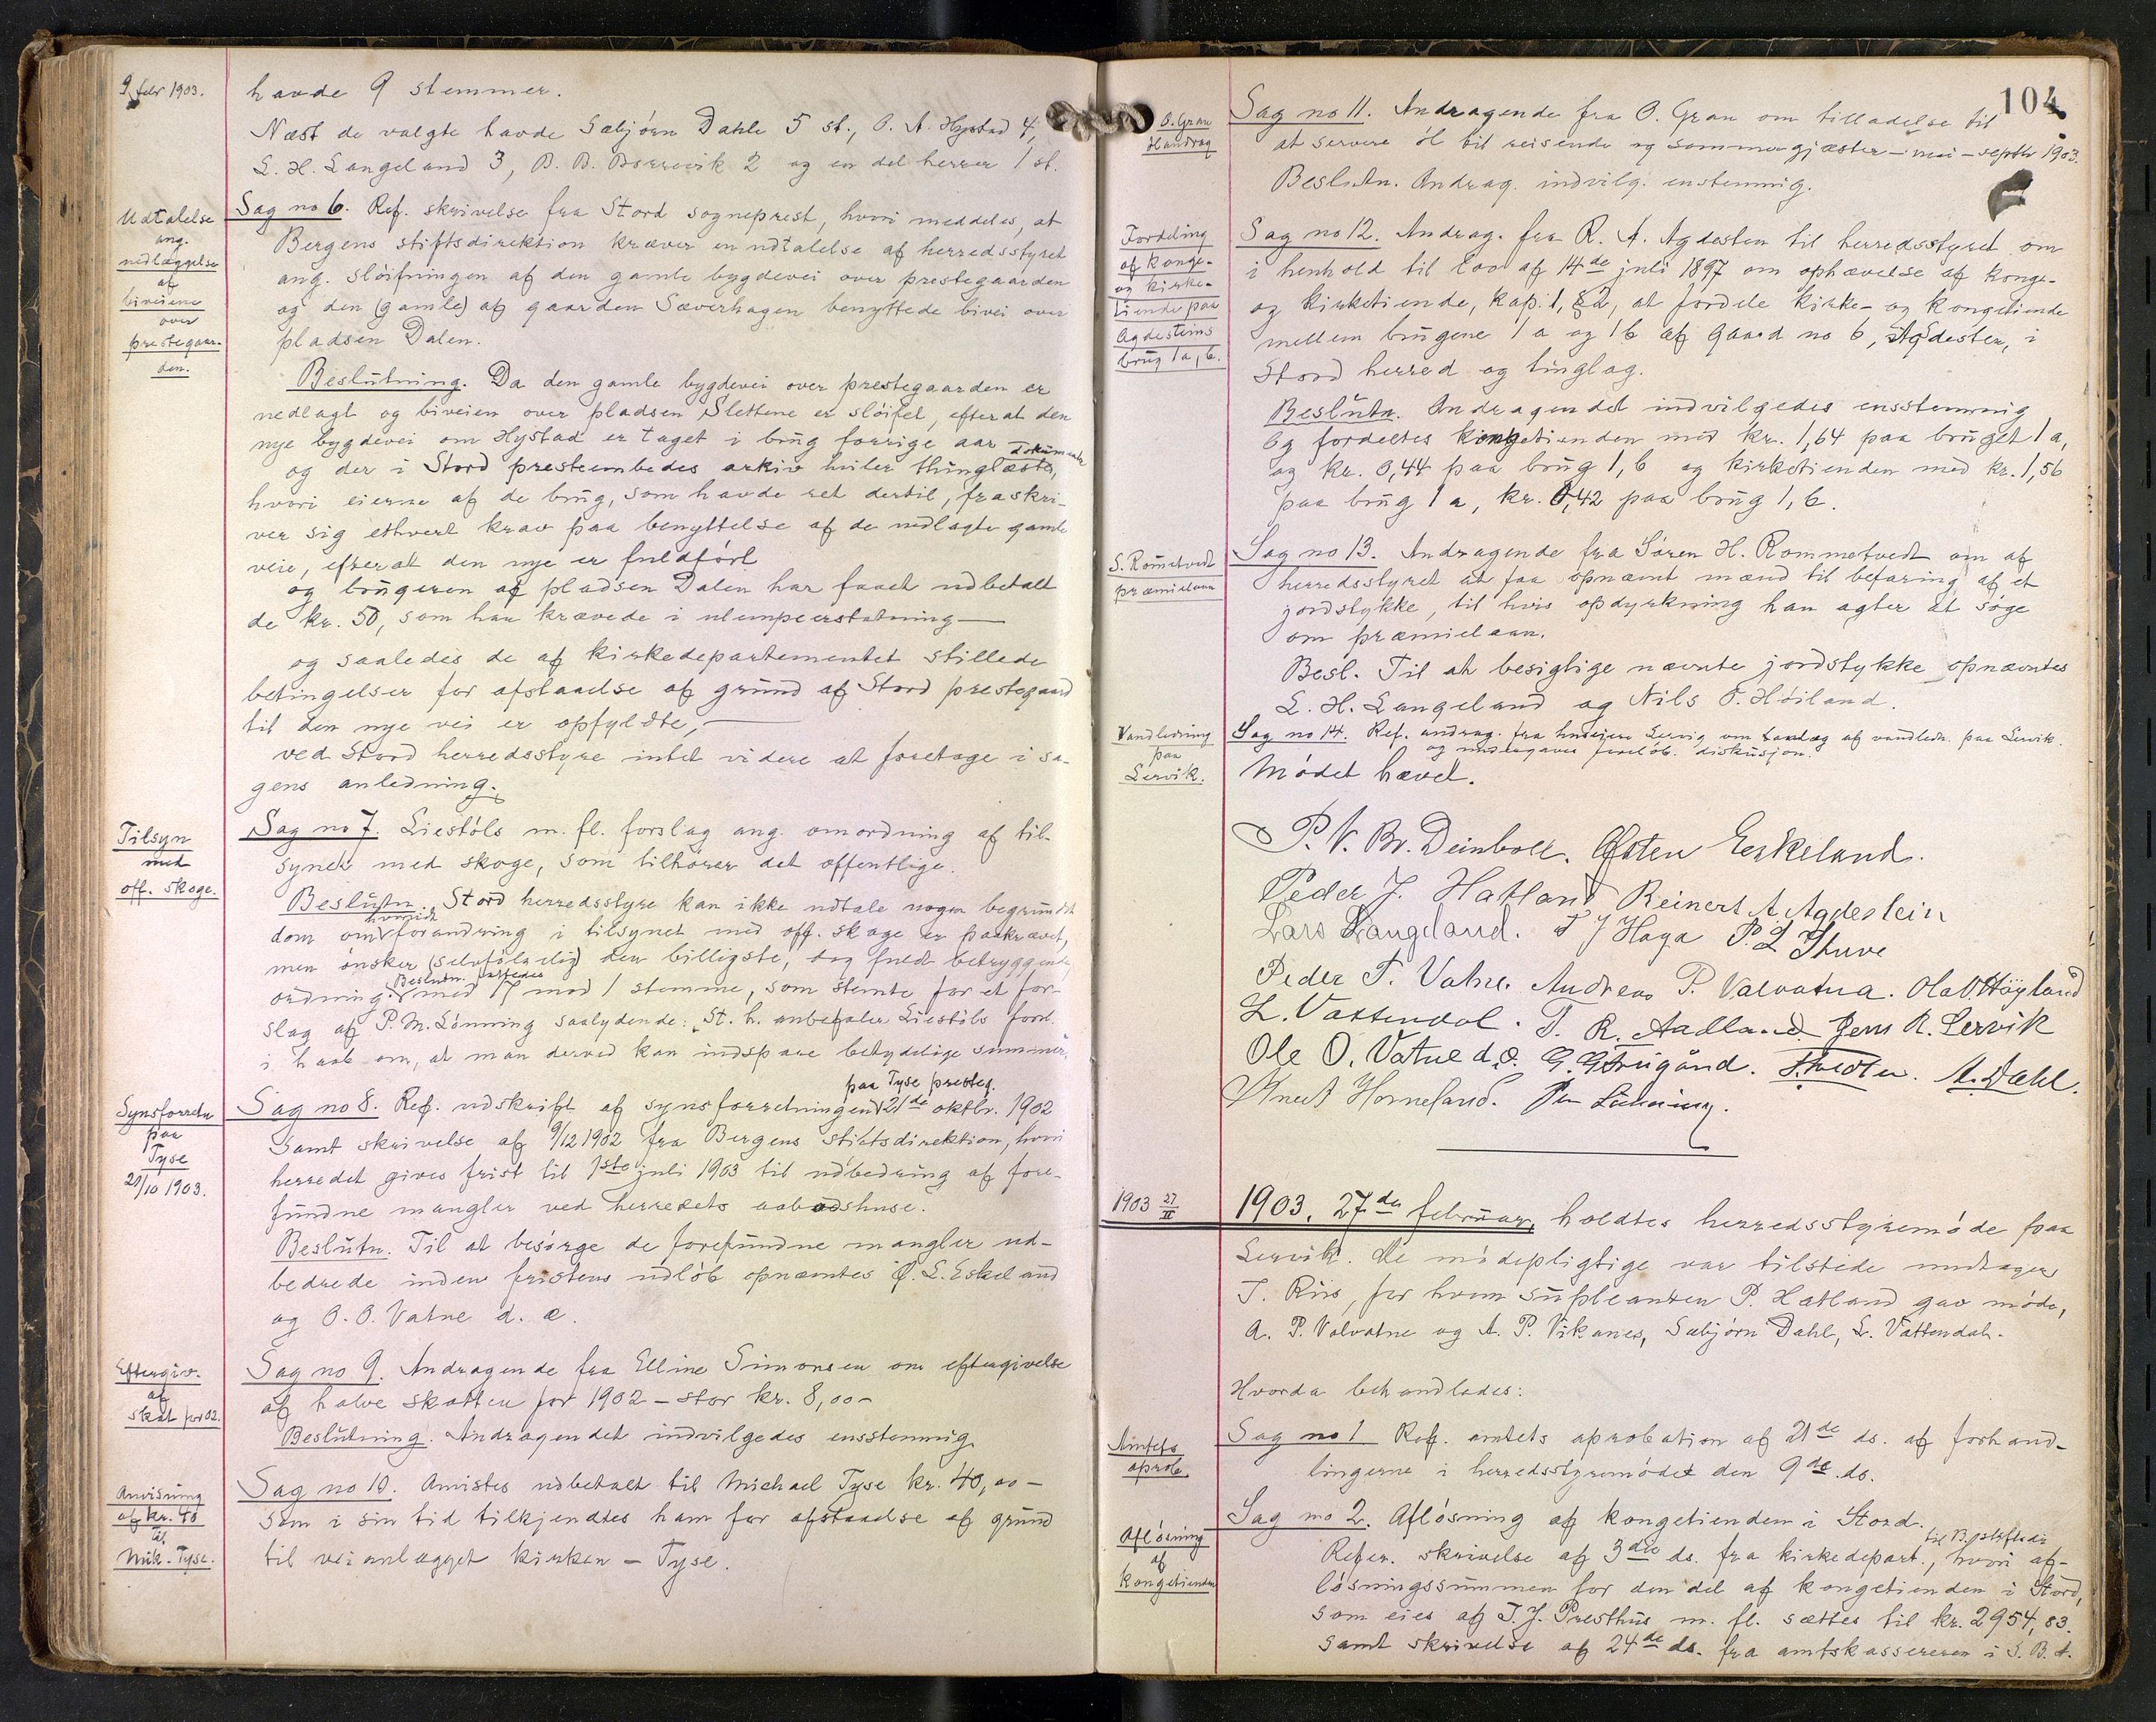 9 febr 1903.
havde 9 stemmer.
Næst de valgte havde Sæbjørn Dahle 5 st., O. A. Hystad 4,
L. H. Langeland 3, B. B. Borrevik 2 og en del herrer 1 st.
Udtalelse
ang.
nedlæggelse
af
biveiene
over
prestegaar-
den.
Sag no 6. Ref. skrivelse fra Stord sogneprest, hvori meddeles, at
Bergens stiftsdirektion kræver en udtalelse af herredsstyret
ang. sløifningen af den gamle bygdevei over prestegaarden
og den (gamle) af gaarden Sæverhagen benyttede bivei over
pladsen Dalen.
Beslutning. Da den gamle bygdevei over prestegaarden er
nedlagt og biveien over pladsen Slettene er sløifet, efterat den
nye bygdevei om Hystad er taget i brug forrige aar
og der i Stord presteembedes arkiv hviler thinglæste, dokumenter
hvori eierne af de brug, som havde ret dertil, fraskri-
ver sig ethvert krav paa benyttelse af de nedlagte gamle
veie, efterat den nye er fuldført
og brugeren af pladsen Dalen har faaet udbetalt
de kr. 50, som han krævede i ulempeerstatning —
og saaledes de af kirkedepartementet stillede
betingelser for afstaaelse af grund af Stord prestegaard
til den nye vei er opfyldte, —
ved Stord herredsstyre intet videre at foretage i sa-
gens anledning.
Tilsyn
med
off. skoge.
Sag no 7. Liestøls m. fl. forslag ang. omordning af til-
synet med skoge, som tilhører det offentlige.
Beslutn. Stord herredsstyre kan ikke udtale nogen begrundet
dom om hvorvidt forandring i tilsynet med off. skoge er paakrævet,
men ønsker (selvfølgelig) den billigste, dog fuldt betryggende
ordning. Beslutn. fattedes med 17 mod 1 stemme, som stemte for et for-
slag af P. M. Lønning saalydende: "St. h. anbefaler Liestøls forsl.
i haab om, at man derved kan indspare betydelige summer."
Synsforretn
paa
Tyse
21/10 1903.
Sag no 8. Ref. udskrift af synsforretningen paa Tyse presteg. 21de oktbr. 1902
samt skrivelse af 9/12 1902 fra Bergens stiftsdirektion, hvori
herredet gives frist til 1ste juli 1903 til udbedring af fore-
fundne mangler ved herredets aabodshuse.
Beslutn. Til at besørge de forefundne mangler ud-
bedrede inden fristens udløb opnæmtes Ø. L. Eskeland
og O. O. Vatne d. e.
Eftergiv.
af
skat for 02.
Sag no 9. Andragende fra Elline Simonsen om eftergivelse
af halve skatten for 1902 – stor kr. 8,00 –
Beslutning. Andragendet indvilgedes ensstemmig.
Anvisning
af kr. 40
til
Mik. Tyse.
Sag no 10. Anvistes udbetalt til Michael Tyse kr. 40,00 –
som i sin tid tilkjendtes ham for afstaaelse af grund
til veianlægget kirken – Tyse.
104
O. Gran
Handrag
Sag no 11. Andragende fra O. Gran om tilladelse til
at servere øl til reisende og sommergjæster – mai – septbr 1903.
Beslutn. Andrag. indvilg. enstemmig.
Fordeling
af konge-
og kirke-
tiende paa
Agdesteins
brug 1a, b.
Sag no 12. Andrag. fra R. A. Agdesten til herredsstyret om
i henhold til lov af 14de juli 1897 om ophævelse af konge-
og kirketiende, kap. 1, § 2, at fordele kirke- og kongetiende
mellem brugene 1 a og 1 b af gaard no 6, Agdesten, i
Stord herred og tinglag.
Beslutn. Andragendet indvilgedes ensstemmig
og fordeltes kongetienden med kr. 1,64 paa bruget 1 a,
og kr. 0,44 paa brug 1, b og kirketienden med kr. 1,56
paa brug 1 a, kr. 0,42 paa brug 1, b.
S. Rometvedt
præmielaan
Sag no 13. Andragende fra Søren H. Rommetvedt om af
herredsstyret at faa opnæmt mænd til befaring af et
jordstykke, til hvis opdyrkning han agter at søge
om præmielaan.
Besl. Til at besigtige nævnte jordstykke opnævntes
L. H. Langeland og Nils O. Høiland.
Vandledning
paa
Lervik.
Sag no 14. Ref. andrag. fra husejere Lervig om anlæg af vandledn. paa Lervik.
og foreløb. diskusjon.
Mødet hævet.
P. V. Br. Deinboll. Østen Eskeland.
Peder J. Hatland Reinert A Agdestein
Lars Langeland. T J Haga P. L Thuve
Peder T. Vatne. Andreas P. Valvatna. Ola O. Høyland
L. Vattendal. T. R. Aadland. Jens R. Lervik
Ole O. Vatne d.e. A. Dahl.
Knut Horneland. Per Lønning.
1903 27/II
1903. 27de februar, holdtes herredsstyremøde paa
Lervik. De mødepligtige var tilstede undtagen
J. Riis, for hvem supleanten P. Hatland gav møde,
A. P. Valvatne og A. P. Vikanes, Sæbjørn Dahl, L. Vattendah.
Hvorda behandledes:
Amtets
aprob.
Sag no 1 Ref. amtets aprobation af 21de ds. af forhand-
lingerne i herredsstyremødet den 9de ds.
Afløsning
af
kongetienden
Sag no 2. Afløsning af kongetienden i Stord.
Refer. skrivelse af 3die ds. fra kirkedepart., til B. stiftsdir hvori af-
løsningssummen for den del af kongetienden i Stord,
som eies af J. J. Presthus m. fl. sættes til kr. 2954,83.
samt skrivelse af 24de ds. fra amtskassereren i S. B. A.